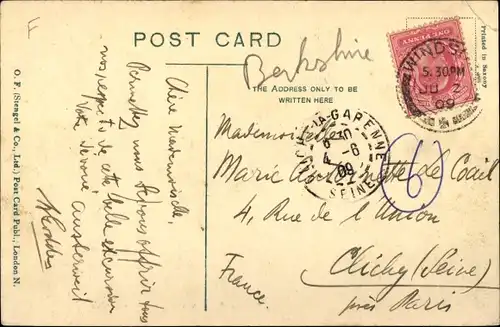 F
POST CARD
Berkshire
THE ADDRESS ONLY TO BE
WRITTEN HERE
Printed in Saxony
WINDSOR
5.30PM
JU 2
09
LA-GARENNE
4-6
09
SEINE
6
O. F. (Stengel & Co., Ltd.) Post Card Publ., London N.
Chère Mademoiselle,
Permettez nous de vous offrir tous
nos respects de cette belle excursion
Votre dévoué
Mademoiselle
Marie Antoinette de Coail
4, Rue de l'Union
Clichy (Seine)
près Paris
France